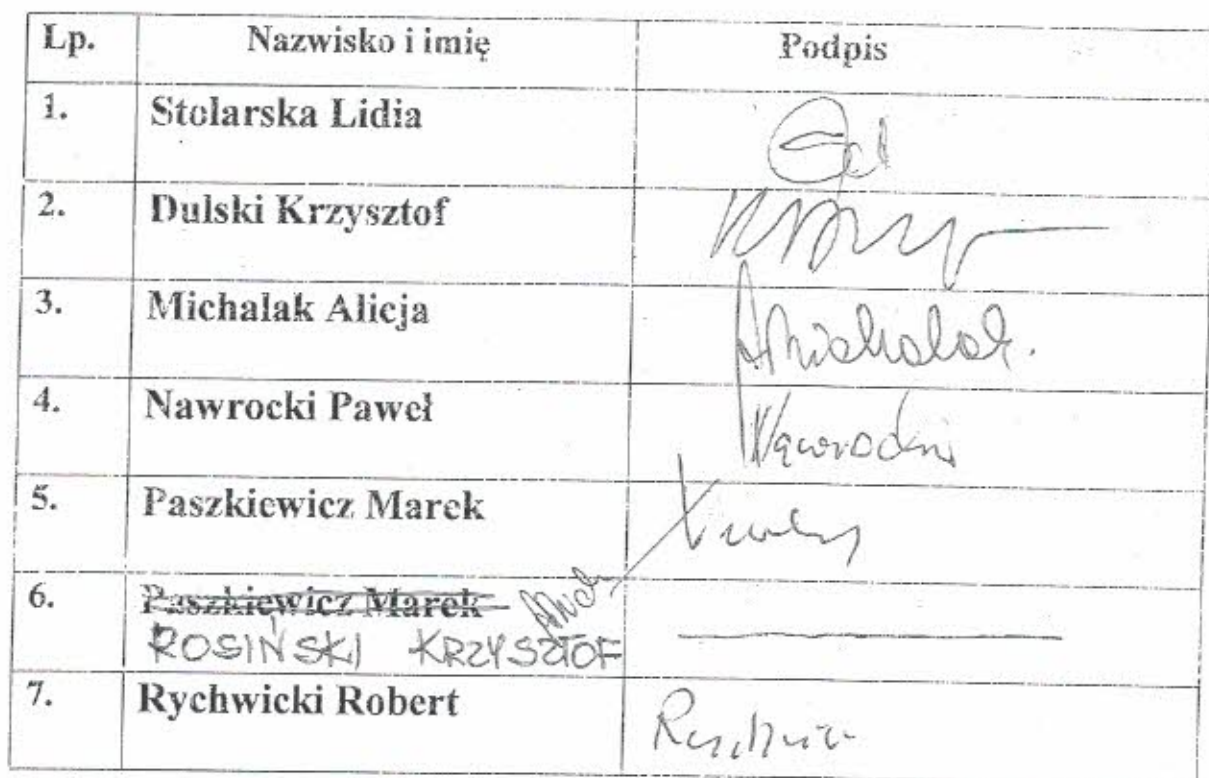 Lp. Nazwisko i imię Podpis
1. Stolarska Lidia
2. Dulski Krzysztof
3. Michalak Alicja AMichalak.
4. Nawrocki Paweł
5. Paszkiewicz Marek
6. Paszkiewicz Marek
ROSIŃSKI KRZYSZTOF
7. Rychwicki Robert